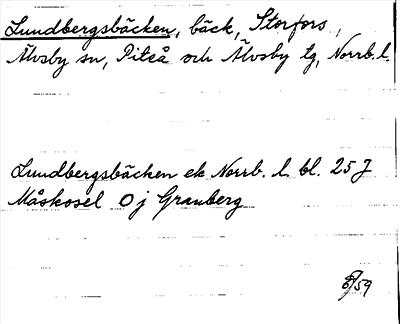 Lundbergsbäcken, bäck, Storfors,
Älvsby sn, Piteå och Älvsby tg, Norrb. l.
Lundbergsbäcken ek Norrb. l. bl. 25 J
Måskosel O j Granberg
/59